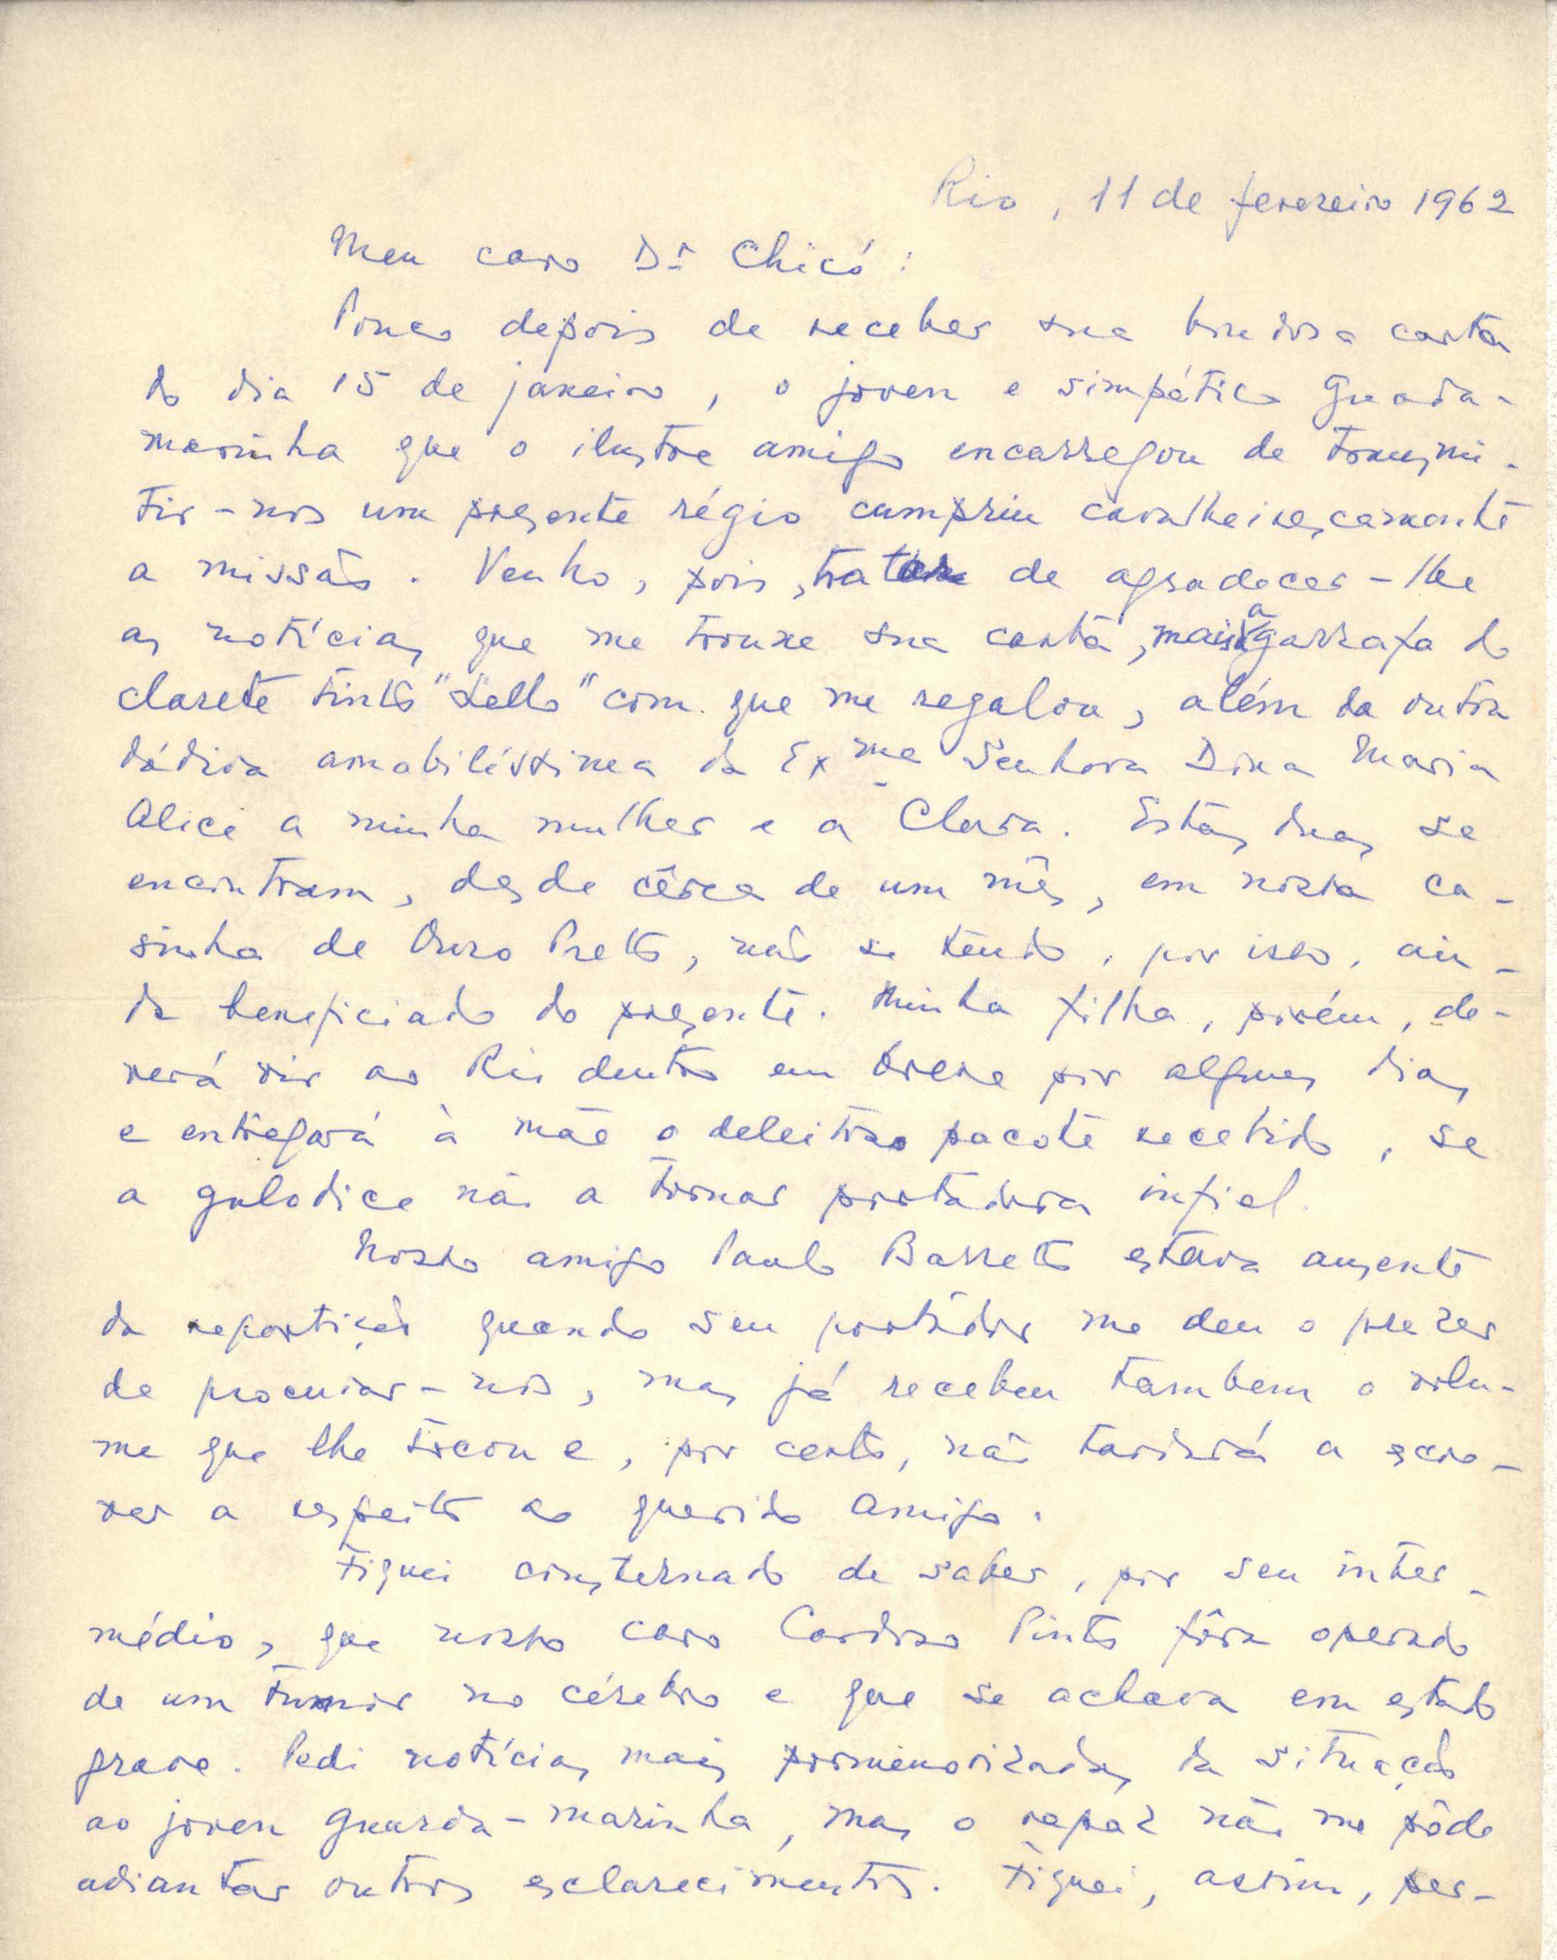 Rio, 11 de fevereiro 1962
Meu caro Dr. Chicó:
Pouco depois de receber sua bondosa carta
do dia 15 de janeiro, o joven e simpático Guarda-
marinha que o ilustre amigo encarregou de transmi-
tir-nos um presente régio cumpriu cavalheirescamente
a missão. Venho, pois, tratar de agradecer-lhe
as notícias que me trouxe sua carta, mais a garrafa do
clarete tinto "Lello" com que me regalou, além da outra
dádiva amabilíssima da Exma Senhora Dona Maria
Alice a minha mulher e a Clara. Estas duas se
encontram, desde cêrca de um mês, em nossa ca-
sinha de Ouro Preto, não se tendo, por isso, ain-
da beneficiado do presente. Minha filha, porém, de-
verá vir ao Rio dentro em breve por alguns dias
e entregará à mãe o deleitoso pacote recebido, se
a gulodice não a tornar portadora infiel.
Nosso amigo Paulo Barreto estava ausente
da repartição quando seu portador me deu o prazer
de procurar-nos, mas já recebeu tambem o volu-
me que lhe tocou e, por certo, não tardará a escre-
ver a respeito ao querido amigo.
Fiquei consternado de saber, por seu inter-
médio, que nosso caro Cardoso Pinto fôra operado
de um tumor no cérebro e que se achava em estado
grave. Pedi notícias mais pormenorizadas da situação
ao joven guarda-marinha, mas o rapaz não me pôde
adiantar outros esclarecimentos. Fiquei, assim, per-